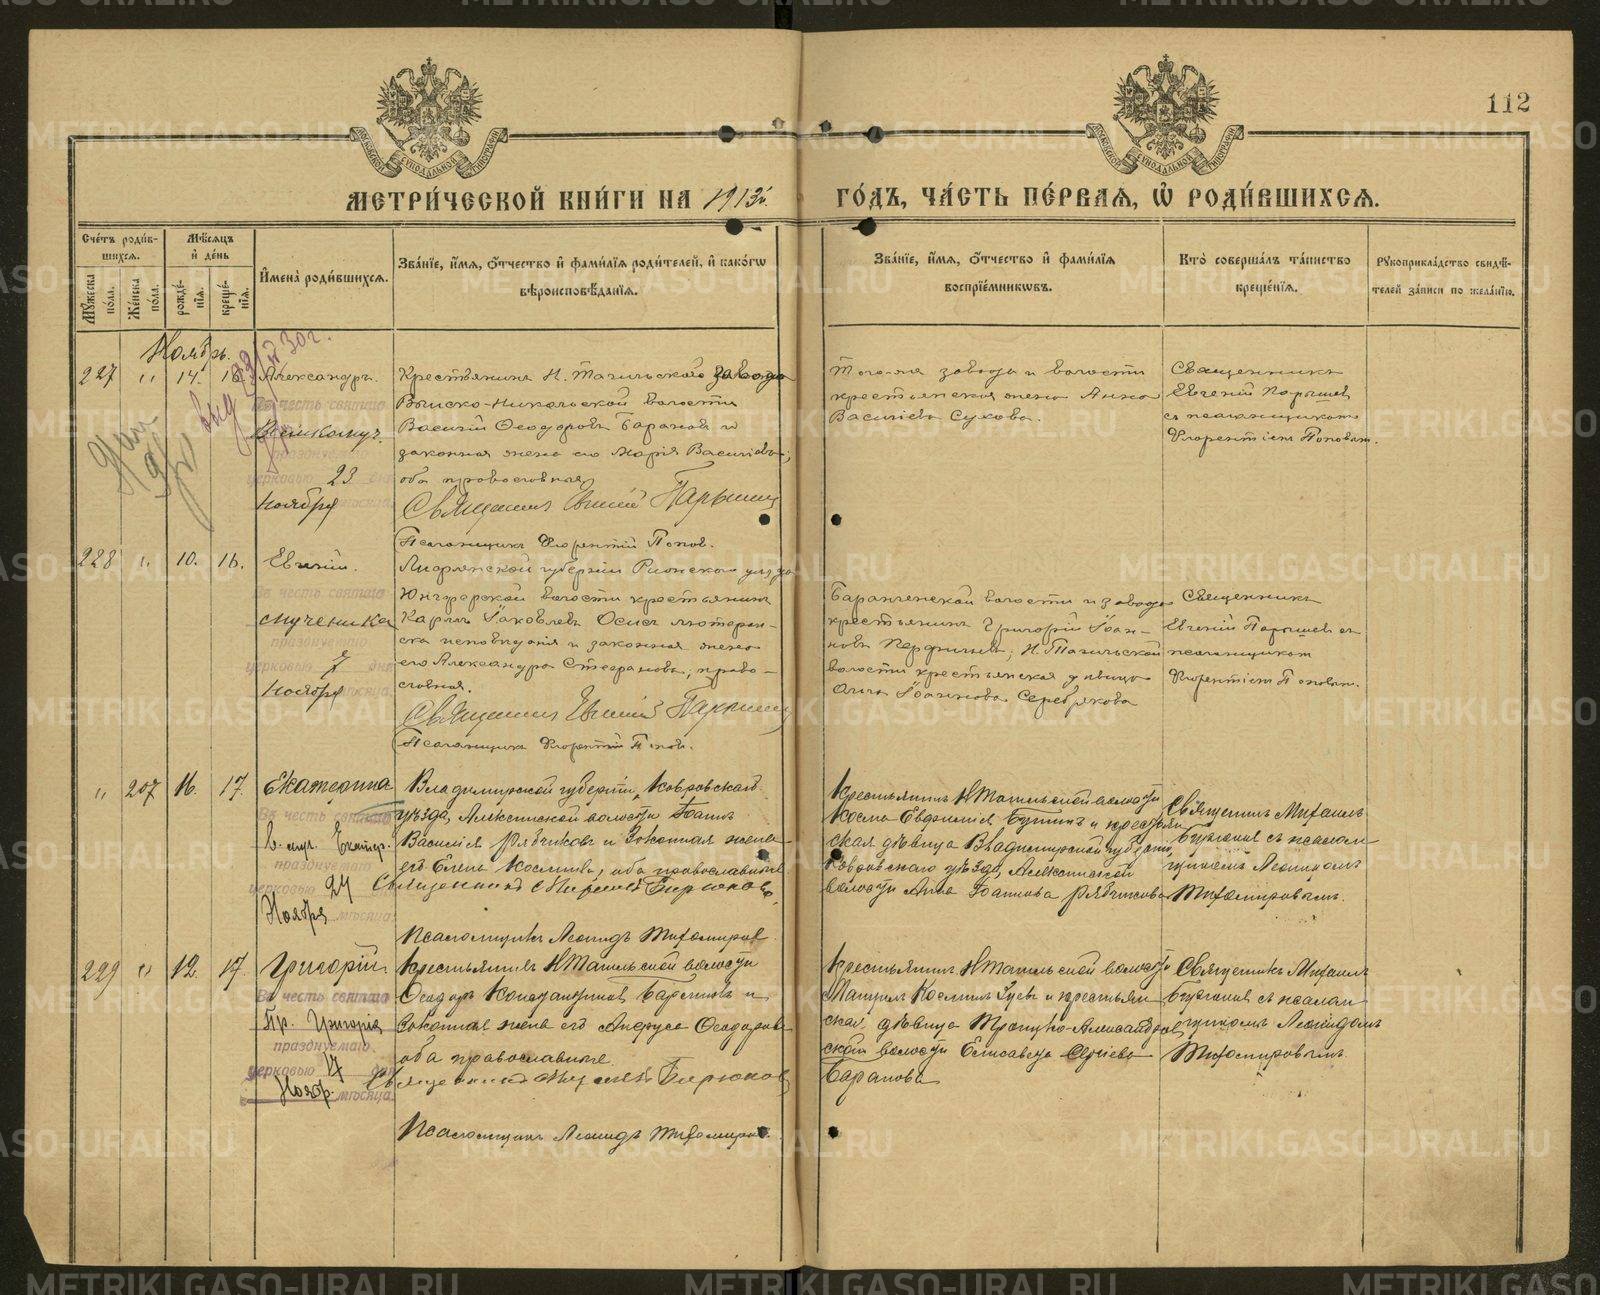 112
МОСКОВСКОЙ СѴНОДАЛЬНОЙ ТИПОГРАФІИ
МОСКОВСКОЙ СѴНОДАЛЬНОЙ ТИПОГРАФІИ
МЕТРИ́ЧЕСКОЙ КНИ́ГИ НА 1913й
ГО́ДЪ, ЧА́СТЬ ПЕ́РВАѦ, Ѿ РОДИ́ВШИХСѦ.
Сче́тъ роди́в-
шихсѧ.
Мѣ́сѧцъ
и҆ де́нь
Мꙋ́жеска по́ла.
Же́нска по́ла.
рожде́-нїѧ.
креще́-нїѧ.
И҆мена̀ роди́вшихсѧ.
Зва́нїе, и҆́мѧ, ѻ҆́тчество и҆ фами́лїѧ роди́телей, и҆ како́гѡ
вѣроисповѣ́данїѧ.
Зва́нїе, и҆́мѧ, ѻ҆́тчество и҆ фами́лїѧ
воспрїе́мникѡвъ.
Кто̀ соверша́лъ та́инство
креще́нїѧ.
Рꙋкоприкла́дство свидѣ́-
телей за́писи по жела́нїю.
Ноябрь.
227 " 14. Александръ.
Въ честь святаго
Великомуч.
празднуемаго
церковью 23 дня
Ноября мѣсяца
Крестьянинъ Н. Тагильскаго завода
Выйско-Никольской волости
Василій Ѳеодоровъ Барановъ и
законная жена его Марія Васильева;
оба православные
Священникъ Евгеній Парышевъ
Псаломщикъ Флорентій Поповъ.
Того-же завода и волости
крестьянская жена Анна
Васильева Сухова.
Священникъ
Евгеній Парышев
съ псаломщикомъ
Флорентіемъ Поповымъ.
228 " 10. 16. Евгеній.
Въ честь святаго
мученика
празднуемаго
церковью 7 дня
Ноября мѣсяца
Лифлянской губерніи уѣзда
волости крестьянинъ
Карлъ Яковлевъ Осисъ лютеран-
ска исповѣданія и законная жена
его Александра Стефанова, право-
славная.
Священникъ Евгеній Парышевъ
Псаломщикъ Флорентій Поповъ.
Баранченской волости и завода
крестьянинъ Григорій Іоан-
новъ Перфильевъ; Н. Тагильской
волости крестьянская дѣвица
Ольга Іоаннова Серебрякова
Священникъ
Евгеній Парышевъ съ
псаломщикомъ
Флорентіемъ Поповым.
" 207 16. 17. Екатерина
Въ честь святаго
В. муч. Екатер.
празднуемаго
церковью 24
Ноября мѣсяца
Владимирской губерніи, Ковровскаго
уѣзда, Алексинской волости Іоаннъ
Василіевъ Рябчиковъ и законная жена
его Елена Космина, оба православные
Священникъ Михаилъ Бирюковъ
Псаломщикъ Леонидъ Тихомировъ
Крестьянинъ НТагильской волости
Косма Евфиміевъ Бутинъ и крестьян
ская дѣвица Владимирской губерніи,
Ковровскаго уѣзда, Алексинской
волости Анна Іоаннова Рябчикова
Священникъ Михаилъ
Бирюковъ съ псалом-
щикомъ Леонидомъ
Тихомировымъ.
229 " 12. 17. Григорій.
Въ честь святаго
Пр. Григорія
празднуемаго
церковью 17 дня
Нояб. мѣсяца
Крестьянинъ НТагильской волости
Ѳеодоръ Константиновъ и
законная жена его Ѳеодорова
оба православные
Священникъ Михаилъ Бирюковъ
Псаломщикъ Леонидъ Тихомировъ.
Крестьянинъ НТагильской волости
Космин Зуевъ и крестьян
ская дѣвица Троицко-Александров
ской волости Елисавета Сергіева
Баранова
Священникъ Михаилъ
Бирюковъ съ псалом
щикомъ Леонидомъ
Тихомировымъ.
METRIKI.GASO-URAL.RU